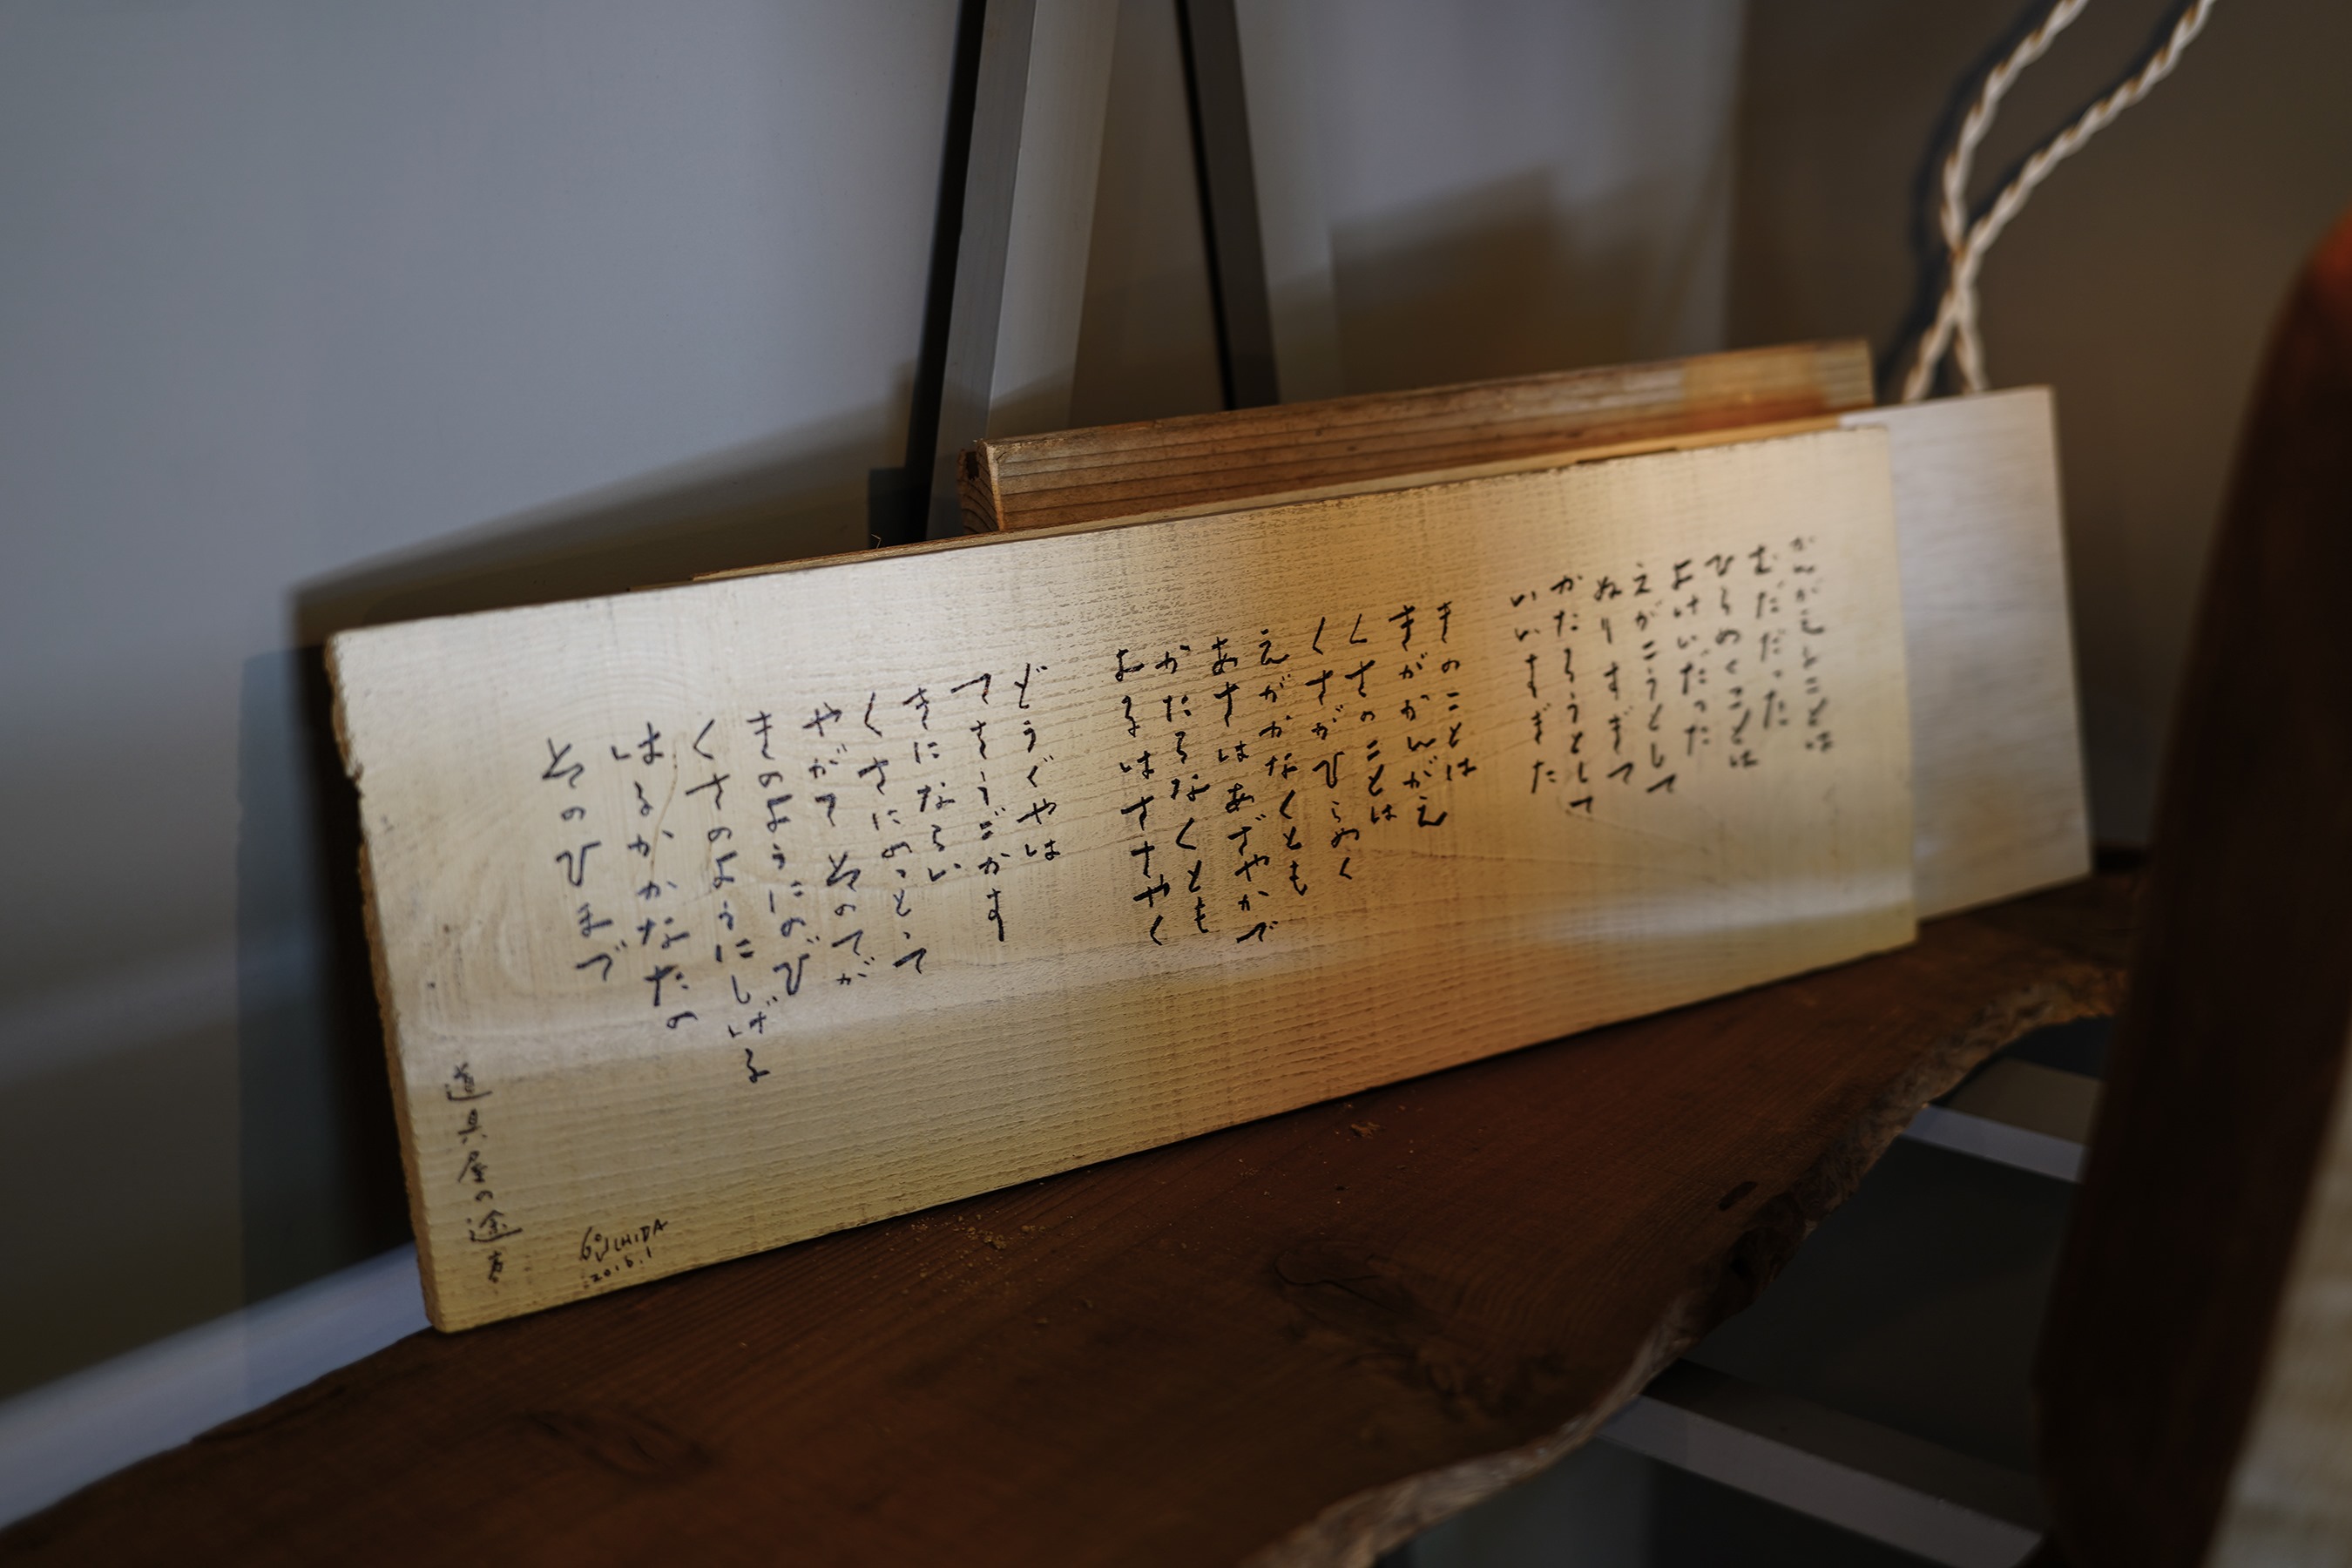 かんがえたことは
むだだった
ひらめくことは
よけいだった
えがこうとして
ぬりすぎて
かたろうとして
いいすぎた
きのことは
きがかんがえ
くさのことは
くさがひらめく
えがかなくとも
あさはあざやかで
かたらなくとも
よるはささやく
どうぐやは
てをうごかす
きにならい
くさにのっとって
やがて そのてが
きのようにのび
くさのようにしげる
はるかかなたの
そのひまで
道具屋の途方
UCHIDA
2016.1